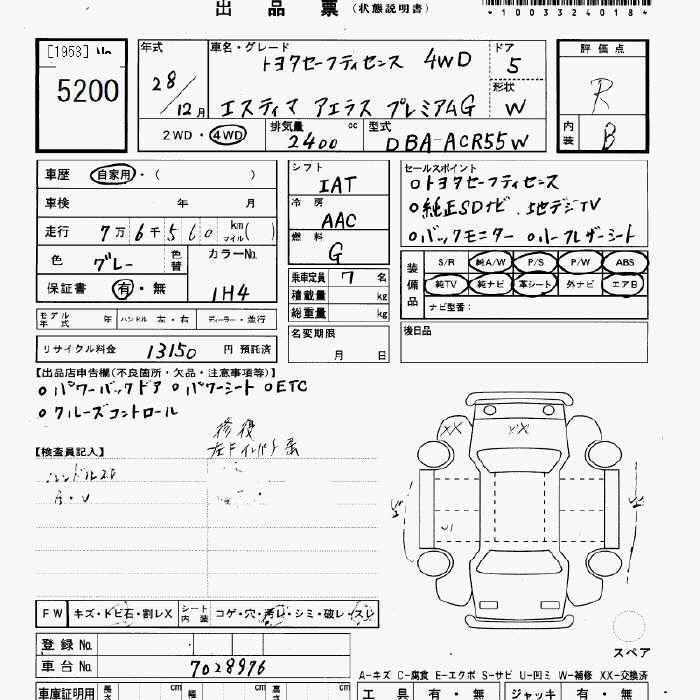 出品票（状態説明書）
*1003324018*
[1953]
5200
年式
28/12月
車名・グレード
トヨタセーフティセンス 4WD
エスティマ アエラス プレミアムG
ドア
5
形状
W
評価点
R
内装
B
2WD・4WD
排気量
2400 cc
型式
DBA-ACR55W
車歴 自家用・( )
車検 年 月
走行 7万6千560 km マイル( )
色 グレー 色替
カラーNo.
1H4
保証書 有・無
シフト
IAT
冷房
AAC
燃料
G
乗車定員 7 名
積載量 kg
総重量 kg
名変期限
月 日
セールスポイント
○トヨタセーフティセンス
○純正SDナビ、地デジTV
○バックモニター ○ハーフレザーシート
装備品
S/R 純A/W P/S P/W ABS
純TV 純ナビ 革シート 外ナビ エアB
ナビ型番：
後日品
モデル年式 年 ハンドル 左・右 ディーラー・並行
リサイクル料金 13150 円 預託済
【出品店申告欄(不良箇所・欠品・注意事項等)】
○パワーバックドア ○パワーシート ○ETC
○クルーズコントロール
修復
【検査員記入】
XX XX
U1
FW キズ・トビ石・割レX
シート内装 コゲ・穴・汚レ・シミ・破レ・スレ
登録No.
車台No. 7028976
スペア
A-キズ C-腐食 E-エクボ S-サビ U-凹ミ W-補修 XX-交換済
車庫証明用 長さ cm 幅 cm 高さ cm
工具 有・無 ジャッキ 有・無